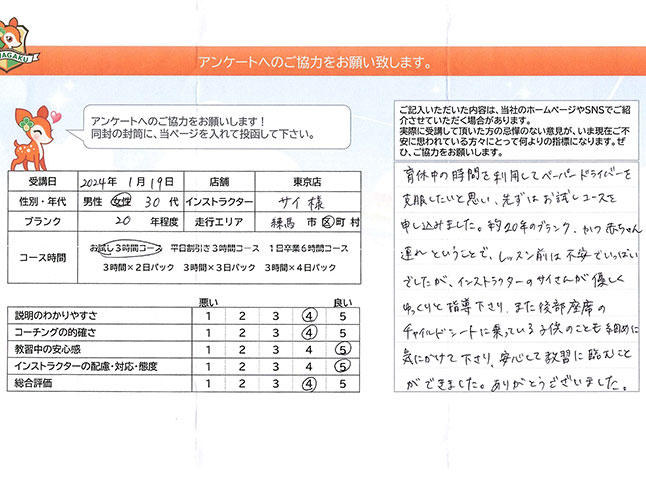 NAGAKU
アンケートへのご協力をお願い致します。
アンケートへのご協力をお願いします！
同封の封筒に、当ページを入れて投函して下さい。
受講日 2024年 1月19日 店舗 東京店
性別・年代 男性 女性 30代 インストラクター サイ 様
ブランク 20 年程度 走行エリア 練馬 市 区 町 村
コース時間 お試し3時間コース 平日割引き3時間コース 1日卒業6時間コース
3時間×2日パック 3時間×3日パック 3時間×4日パック
悪い 良い
説明のわかりやすさ 1 2 3 4 5
コーチングの的確さ 1 2 3 4 5
教習中の安心感 1 2 3 4 5
インストラクターの配慮・対応・態度 1 2 3 4 5
総合評価 1 2 3 4 5
ご記入いただいた内容は、当社のホームページやSNSでご紹
介させていただく場合があります。
実際に受講して頂いた方の忌憚のない意見が、いま現在ご不
安に思われている方々にとって何よりの指標になります。ぜ
ひ、ご協力をお願いします。
育休中の時間を利用してペーパードライバーを
克服したいと思い、先ずはお試しコースを
申し込みました。約20年のブランク、かつ赤ちゃん
連れということで、レッスン前は不安でいっぱい
でしたが、インストラクターのサイさんが優しく
ゆっくりと指導下さり、また後部座席の
チャイルドシートに乗っている子供のことも細めに
気にかけて下さり、安心して教習に臨むこと
ができました。ありがとうございました。